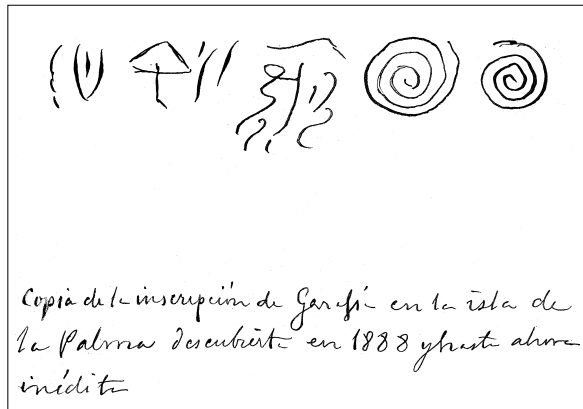 Copia de la inscripción de Garafía en la isla de
la Palma descubierta en 1888 y hasta ahora
inédita